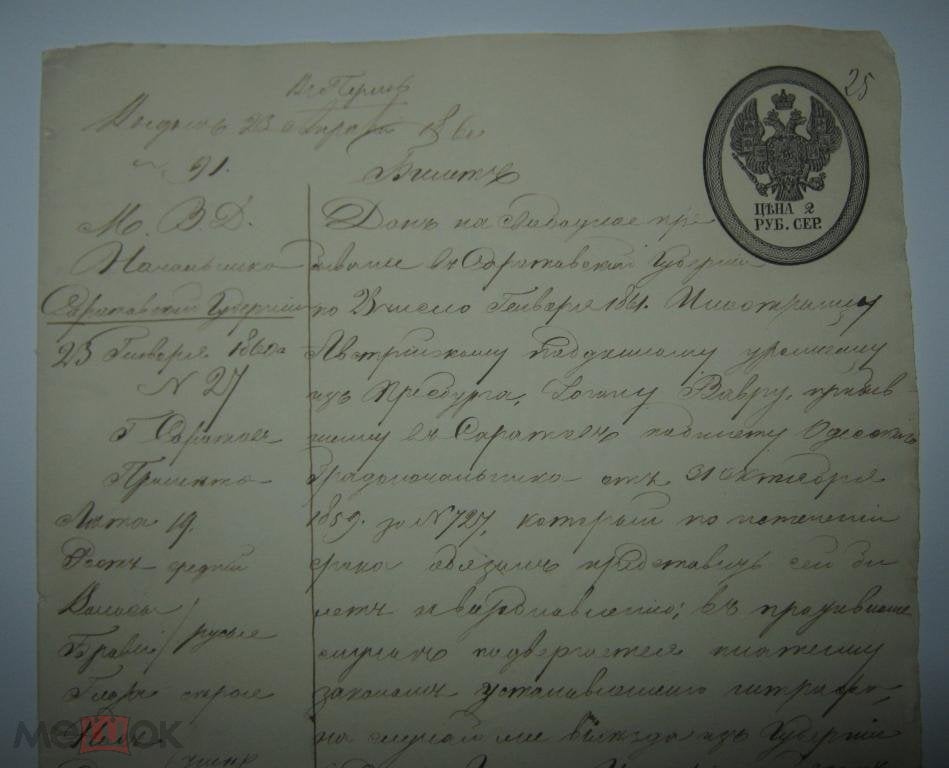 25
Билетъ
91.
ЦѢНА 2
РУБ. СЕР.
М. В. Д.
Начальника
Саратовской Губерніи
25 Генваря 1860 г.
N 27
Г. Саратовъ
Примѣты
Лѣта 19.
Ростъ средній
Волосы
Брови русые
Глаза сѣрые
Данъ на свободное пре
бываніе въ Саратовской Губерніи
по 23 число Генваря 1861. Иностранцу
Австрійскому подданному уроженцу
изъ Пресбурга, Іогану Вавру, прибыв
шему въ Саратовъ по билету Одесскаго
Градоначальника отъ 31 Октября
1859. за N 727, который по истеченіи
срока обязанъ представить сей би
летъ къ возобновленію; въ противномъ
случаѣ подвергается платежу
законами установленнаго штрафа,
на случай же выѣзда изъ Губерніи
МЕШОК